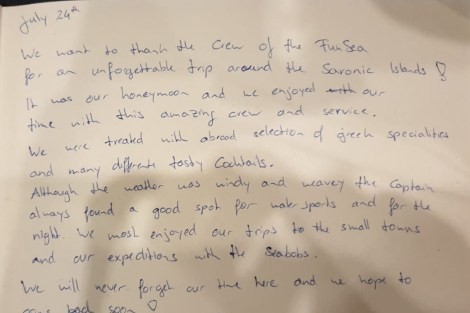 July 24th
We want to thank the Crew of the FunSea
for an unforgettable trip around the Saronic Islands!
It was our honeymoon and we enjoyed our
time with this amazing crew and service.
We were treated with abroad selection of greek specialities
and many differente tasty Cocktails.
Although the weather was windy and weavey the Captain
always found a good spot for watersports and for the
night. We most enjoyed our trips to the small towns
and our expeditions with the Seabobs.
We will never forget our time here and we hope to
come back soon